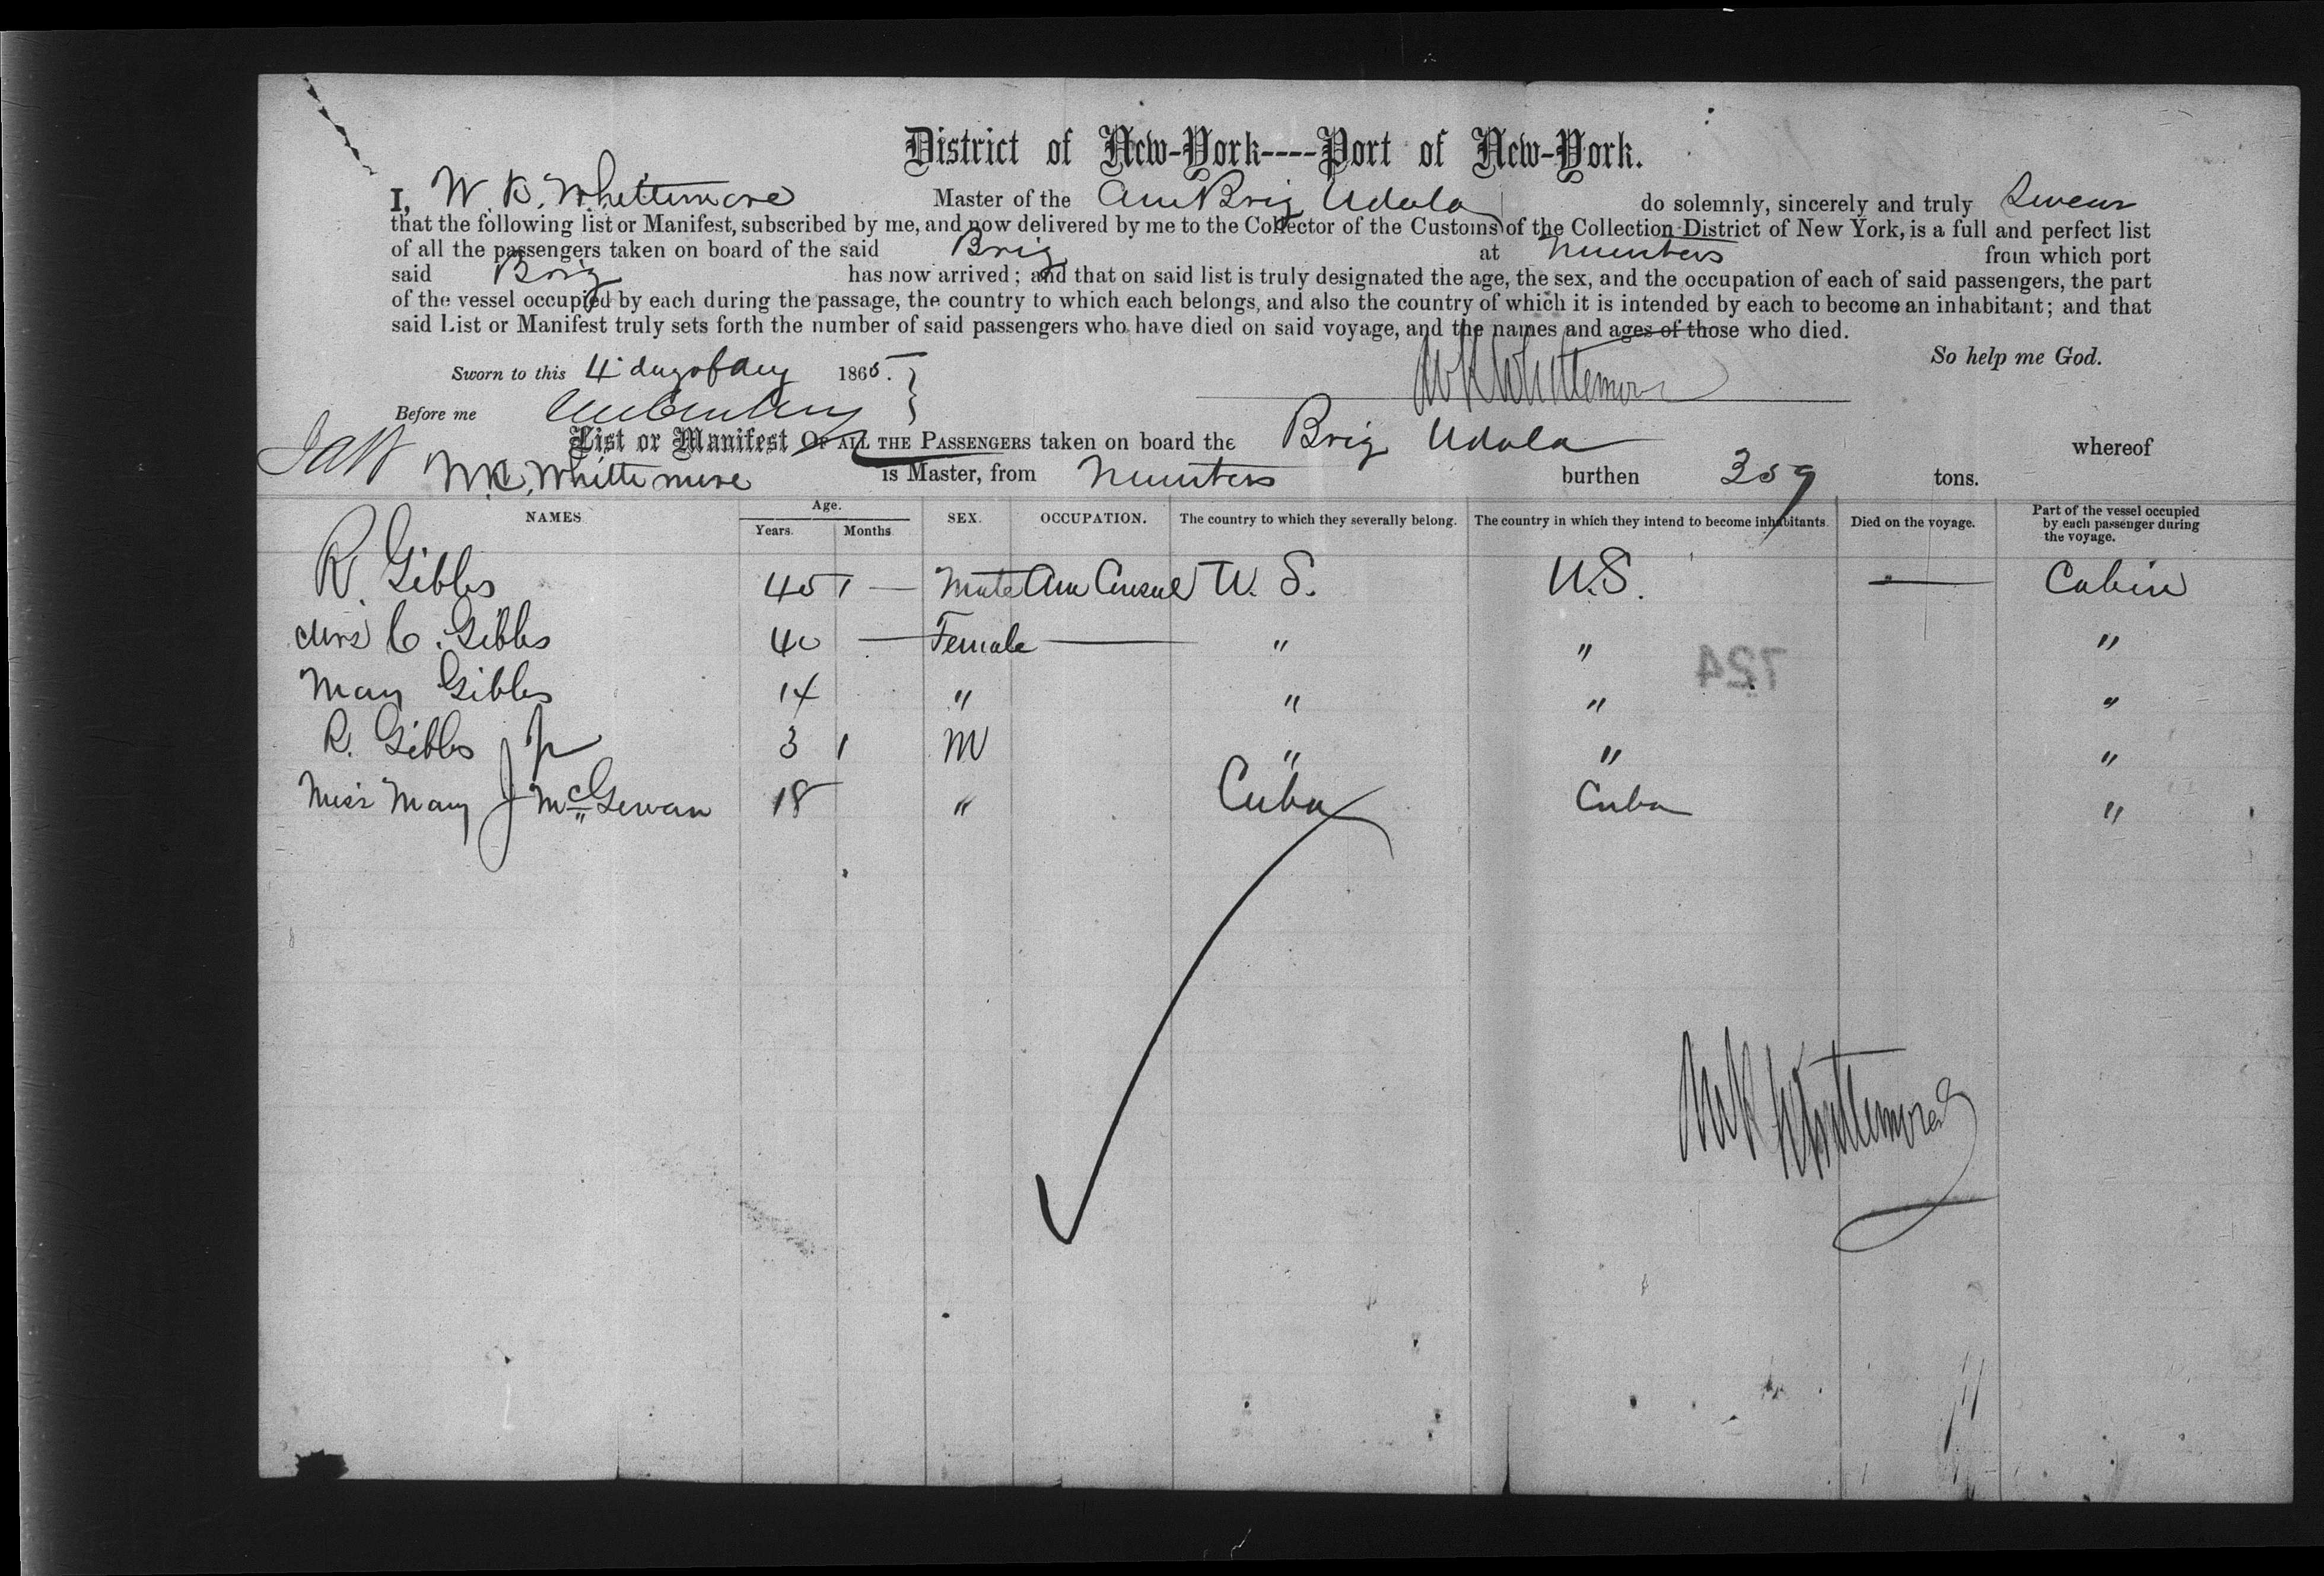 District of New-York----Port of New-York.
I, W. K. Whittemore Master of the Am Brig Udola do solemnly, sincerely and truly Swear
that the following list or Manifest, subscribed by me, and now delivered by me to the Collector of the Customs of the Collection District of New York, is a full and perfect list
of all the passengers taken on board of the said Brig at Nuevitas from which port
said Brig has now arrived; and that on said list is truly designated the age, the sex, and the occupation of each of said passengers, the part
of the vessel occupied by each during the passage, the country to which each belongs, and also the country of which it is intended by each to become an inhabitant; and that
said List or Manifest truly sets forth the number of said passengers who have died on said voyage, and the names and ages of those who died.
So help me God.
Sworn to this 4 day of Aug 1865. W K Whittemore
Before me
List or Manifest OF ALL THE PASSENGERS taken on board the Brig Udola whereof
W.K. Whittemore is Master, from Nuevitas burthen 359 tons.
NAMES Age. Years. Months SEX. OCCUPATION. The country to which they severally belong. The country in which they intend to become inhabitants. Died on the voyage. Part of the vessel occupied by each passenger during the voyage.
R. Gibbs 45 Male Am Consul U. S. U.S. — Cabin
Mrs C. Gibbs 40 — Female — " " "
Mary Gibbs 14 " " " "
R. Gibbs Jr 3 1 M " " "
Miss Mary J McGewan 18 " Cuba Cuba "
724
W K Whittemore